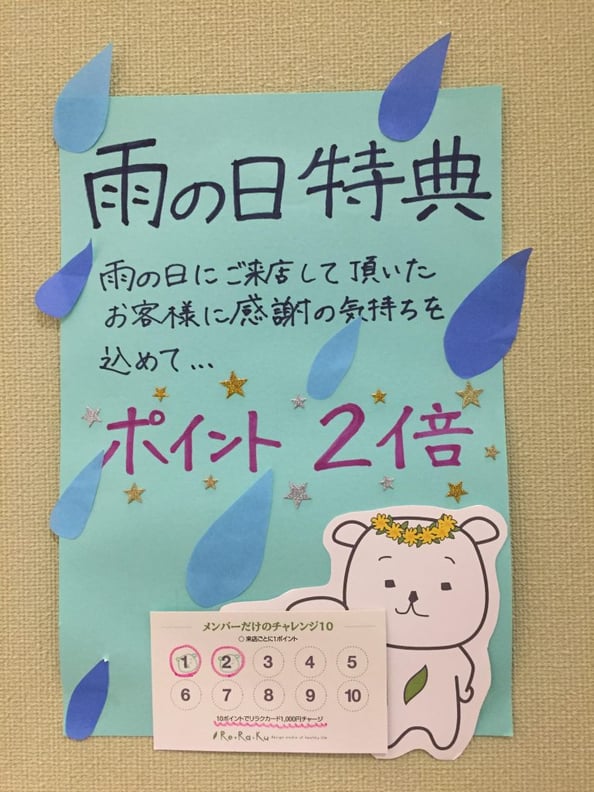 雨の日特典
雨の日にご来店して頂いた
お客様に感謝の気持ちを
込めて...
ポイント 2倍
メンバーだけのチャレンジ10
○来店ごとに1ポイント
1 2 3 4 5
6 7 8 9 10
10ポイントでリラクカード1,000円チャージ
Re.Ra.Ku design studio of healthy life